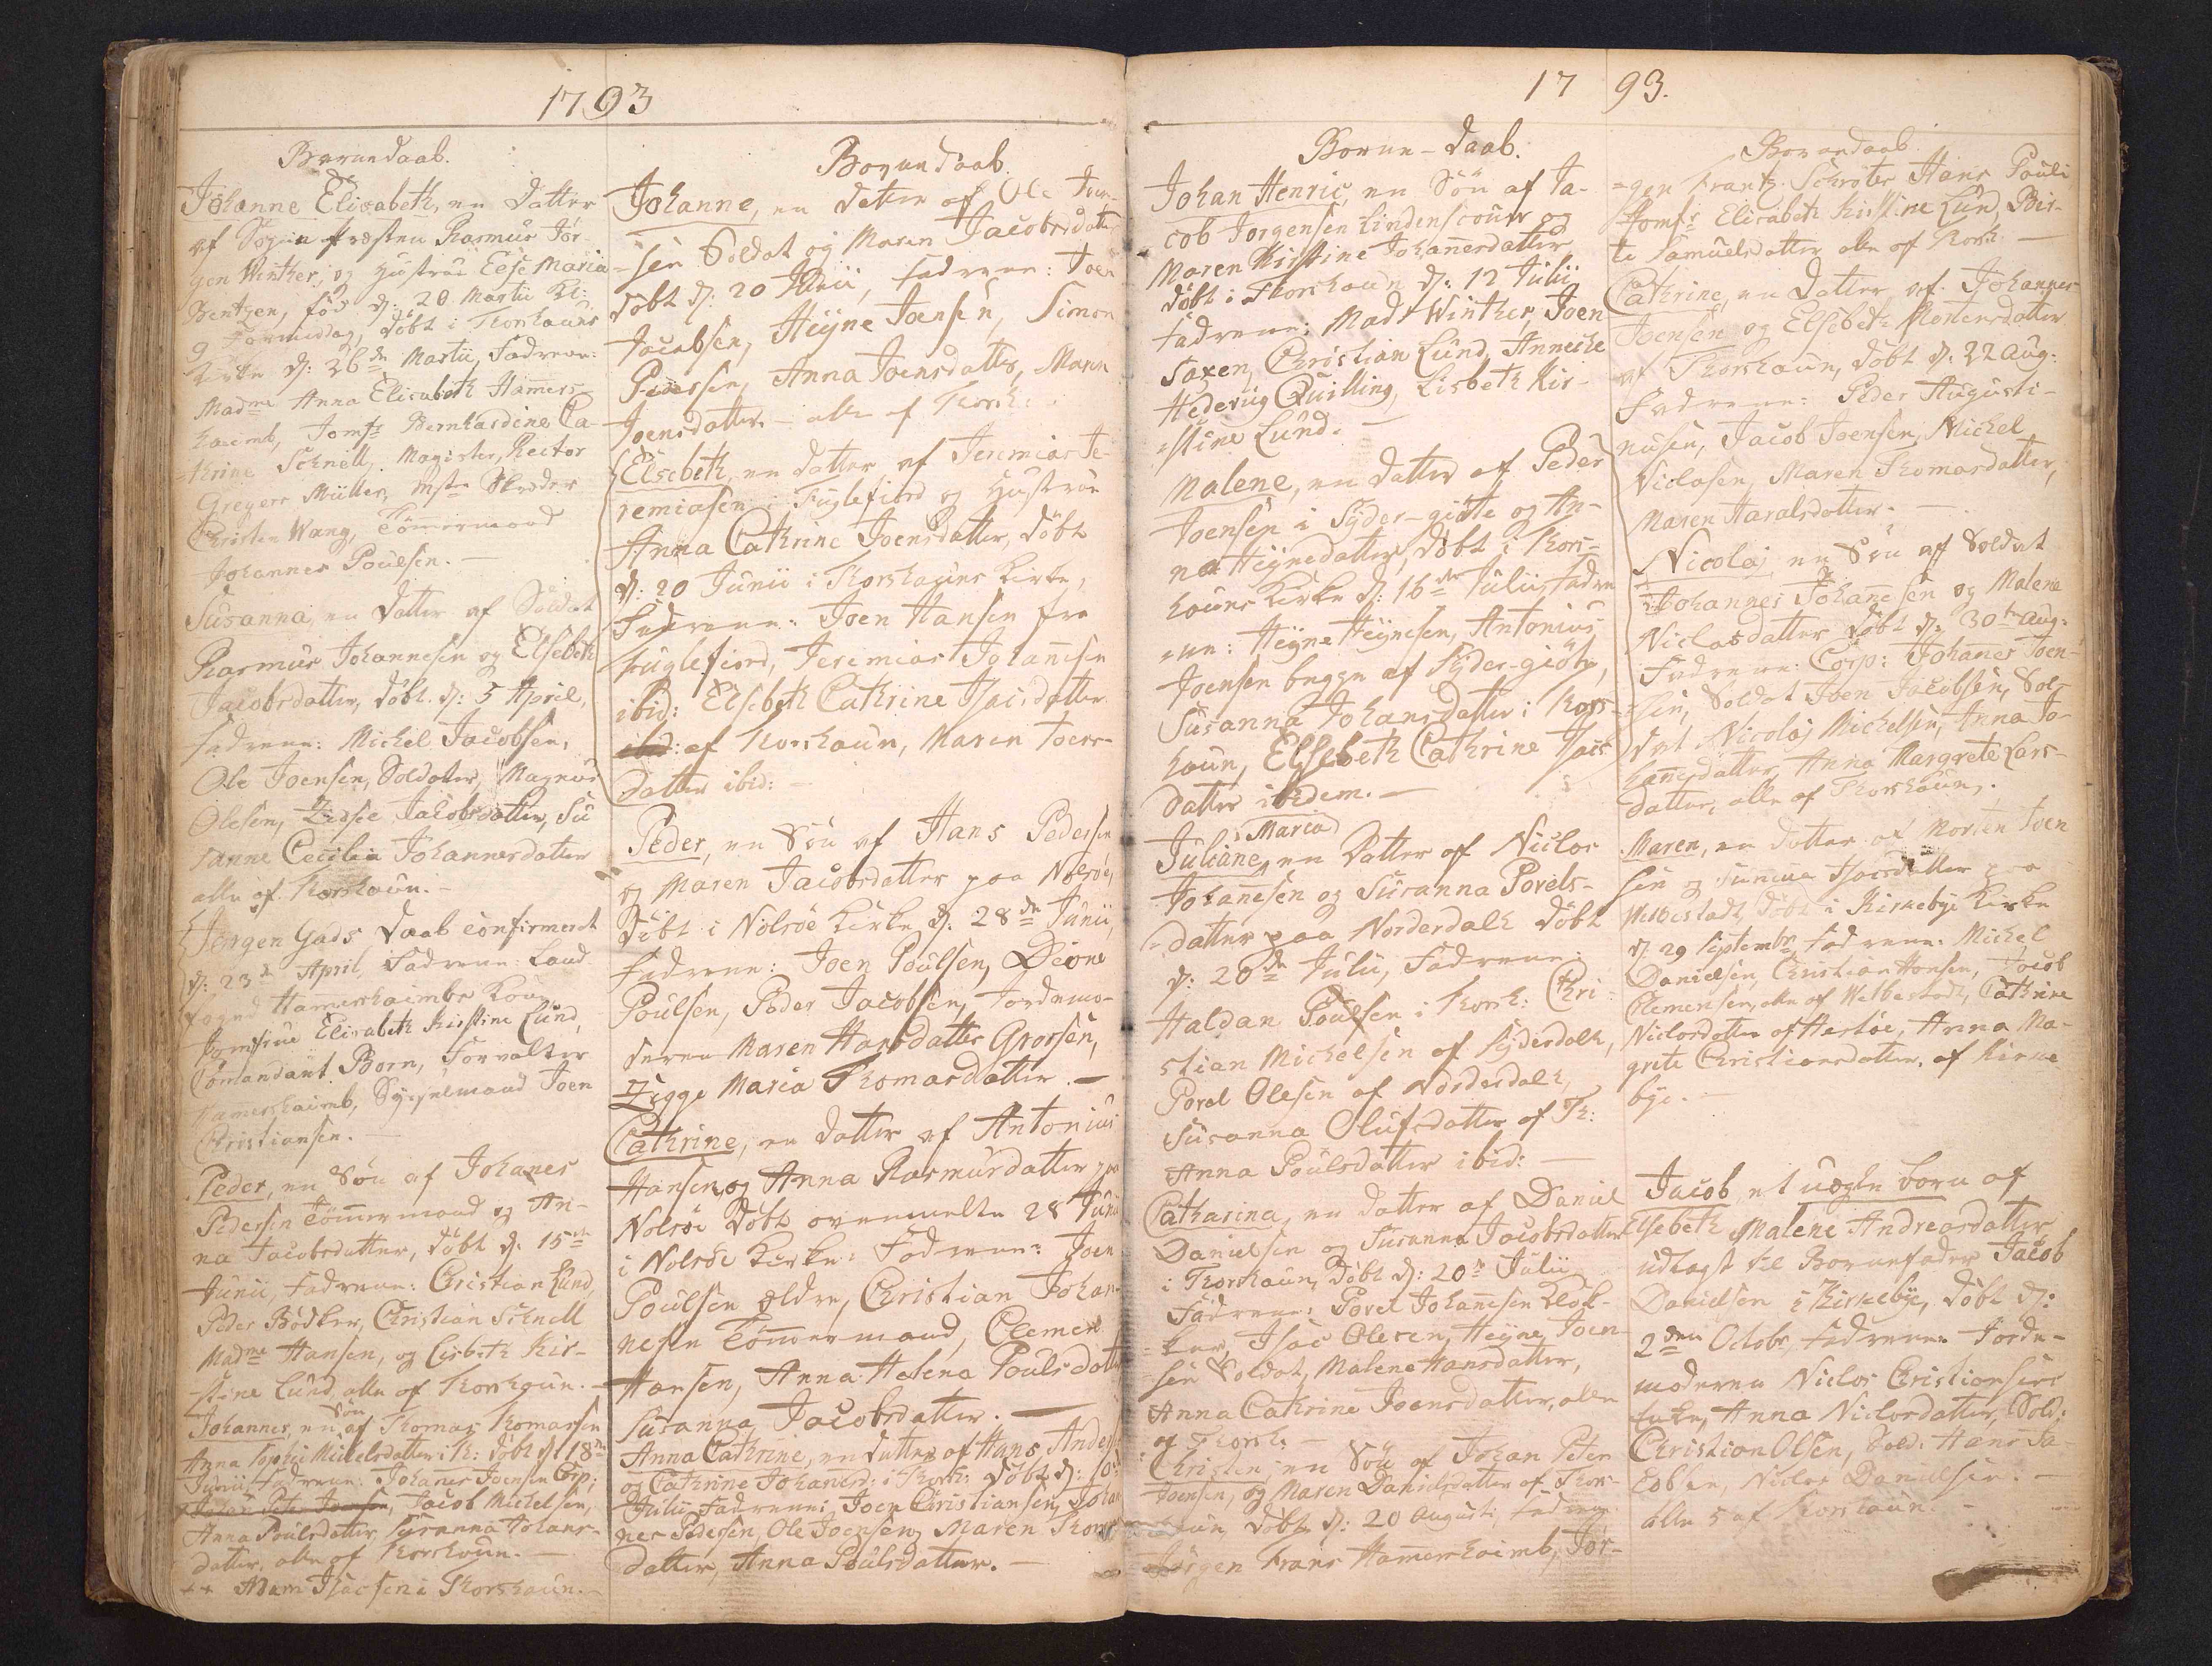 1793
Børnedaab.
Johanne Elisabeth, en datter
af Sogne Præsten Rasmus Jør-
gen Winther, og Hustrue Else Maria
Bentzen, fød d: 20 Martii Kl:
9 Formiddag, døbt i Thorshauns
Kirke d: 26de Martii, Fadrene:
Madme Anna Elisabeth Hamers-
haimb, Jomfr Bernhardine Ca-
thrine Schnell, Magister, Rector
Gregers Müller, Mster Skreder
Christen Wang, Tömmermand
Johannes Poulsen. -
Susanna, en datter af Soldat
Rasmus Johannesen og Elsebeth
Jacobsdatter, döbt d: 5 April,
Fadrene: Michel Jacobsen,
Ole Joensen, Soldater, Magnus
Olesen, Jacobsdatter, Su
sanne Cecilia Johannesdatter
alle af Thorshaun. -
Jörgen Gads daab confirmeret
d: 23de April, Fadrene: Land
foged Hamershaimbs Kone,
Jomfrue Elisabeth Kirstine Lund,
Comandant Born, Forvalter
Hamershaimb, Sysselmand Joen
Christiansen. -
Peder, en Sön af Johanes
Pedersen Tömmermand og An-
na Jacobsdatter, döbt d: 15de
Junii, Fadrene: Christian Lund,
Peder Bödker, Christian Schnell
Madme Hansen, og Lisbeth Kir-
stine Lund, alle af Thorshaun. -
Johannes, en Sön af Thomas Thomassen
Anna Sophie Michelsdatter i Th: döbt d: 18de
Junii, Fadrene: Johanes Joensen Corp:
Johan Peter Joensen, Jacob Michelsen,
Anna Poulsdatter, Susanna Johans-
datter, alle af Thorshaun. -
++ Adam Isacsen i Thorshaun. -
Børnedaab.
Johanne, en datter af Ole Joen-
sen Soldat og Maren Jacobsdatter
döbt d: 20 Junii, Fadrene: Joen
Jacobsen, Heÿne Joensen, Simon
Pedersen, Anna Joensdatter, Maren
Joensdatter - alle af Thorsh:
Elsebeth, en datter af Jeremias Je-
remiasen i Fuglefiord og Hustrue
Anna Cathrine Joensdatter, döbt
d: 20 Junii i Thorshauns Kirke,
Fadrene: Joen Hansen fra
Fuglefiord, Jeremias Johanesen
ibid: Elsebeth Cathrine Isacsdatter
ibid: af Thorshaun, Maren Joens-
datter ibid: -
Peder, en Sön af Hans Pedersen
og Maren Jacobsdatter paa Nolsöe,
döbt i Nolsöe Kirke d: 28de Junii,
Fadrene: Joen Poulsen, Deone
Poulsen, Peder Jacobsen, Jordemo-
deren Maren Hansdatter Grorsen,
Zigge Maria Thomasdatter. -
Cathrine, en datter af Antonius
Hansen, og Anna Rasmusdatter paa
Nolsöe döbt ovenmelte 28 Junii
i Nolsöe Kirke: Fadrene: Joen
Poulsen ældre, Christian Johan-
nesen Tömmermand, Clemen
Hansen, Anna Helena Poulsdatter
Susanna Jacobsdatter. -
Anna Cathrine, en datter af Hans Anders
og Cathrine Johanesd: i Thorsh: döbt d:
Julii, Fadrene: Joen Christiansen, Johan
nes Pedersen, Ole Joensen, Maren Thoms
datter, Anna Poulsdatter. -
17 93.
Børne-daab.
Johan Henric, en Sön af Ja-
cob Jorgensen Lindenscouw og
Maren Kirstine Johanesdatter
döbt i Thorshaun d: 12 Julii
Fadrene: Mads Winther, Joen
Saxen, Christian Lund, Anneche
Hedevig Quilling, Lisbeth Kir-
stine Lund. -
Malene, en datter af Peder
Joensen i Syder-giöte og An-
na Heÿnedatter, döbt i Thors-
hauns Kirke d: 16de Julii, Fadre
ne: Heÿne Heÿnesen, Antonius
Joensen begge af Syder-giöte,
Susanna Johansdatter i Thors-
haun, Elsebeth Cathrine Isacs
datter ibidem. -
Maria
Juliane, en datter af Niclas
Johanesen og Susanna Povels-
datter paa Norderdalh döbt
d: 20de Julii, Fadrene:
Haldan Poulsen i Thorsh: Chri-
stian Michelsen af Syderdalh,
Povel Olesen af Norderdalh,
Susanna Olufsdatter af Th:
Anna Poulsdatter ibid: -
Catharina, en datter af Daniel
Danielsen og Susanna Jacobsdatter
i Thorshaun, döbt d: 20de Julii
Fadrene: Povel Johanesen Klok-
ker, Isac Olesen, Heÿne Joen-
sen Soldat, Malene Hansdatter,
Anna Cathrine Joensdatter, alle
af Thorsh: -
Christen, en Sön af Johan Peter
Joensen, og Maren Danielsdatter af Thors-
haun, döbt d: 20 Augusti, Fadrene
Jörgen Frans Hamershaimb, Jör-
Børnedaab
-gen Frantz Schröter Hans Pouli
Jomfr Elisabeth Kirstine Lund, Bir-
te Samuelsdatter alle af Thorsh: -
Cathrine, en datter af Johannes
Joensen og Elsebeth Mortensdatter
af Thorshaun, döbt d: 22 Aug:
Fadrene: Peder Augusti-
nusen, Jacob Joensen, Michel
Niclasen, Maren Thomasdatter,
Maren Haralsdatter. -
Nicolaj, en Sön af Soldat
Johannes Johanesen og Malene
Niclasdatter döbt d: 30te Aug:
Fadrene: Corp: Johanes Joen-
sen, Soldat Joen Jacobsen, Sol-
dat Nicolaj Michelsen, Anna Jo-
hanesdatter, Anna Margrete Lars-
datter, alle af Thorshaun.
Maren, en datter af Morten Joen
sen og Sunneva Isacsdatter paa
Welbestadt, döbt i Kirkebye Kirke
d: 29 Septembr: Fadrene: Michel
Danielsen, Christian Hansen, Jacob
Clemensen, alle af Welbestadt, Cathrine
Niclasdatter af Hestöe, Anna Ma-
grete Christiansdatter af Kirke
bye. -
Jacob, et uægte barn af
Elsebeth Malene Andreasdatter
udlagt til Barnefader Jacob
Danielsen i Kirkebye, döbt d:
2den Octobr, Fadrene: Jorde-
moderen Niclas Christiansens
Enke, Anna Niclasdatter, Sold:
Christian Olsen, Sold: Hans Ja-
cobsen, Niclas Danielsen. -
alle 5 af Thorshaun. -